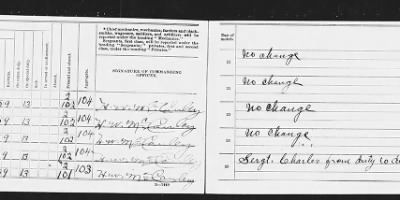 * Chief mechanics, mechanics, farriers and black-
smiths, wagoners, saddlers, and artificers, will be
reported under the heading "Mechanics."
Sergeants, first class, will be reported under the
heading "Sergeants;" privates, first and second
class, under the heading "Privates."
SIGNATURE OF COMMANDING
OFFICER.
Day of
month
Aggregate.
Present and absent.
2
9 13 102 104 H. W. McCauley
2
9 13 102 104 H. W. McCauley
2
9 13 102 104 H. W. McCauley
2
9 13 102 104 H. W. McCauley
2
9 13 101 103 H. W. McCauley
no change
no change
no change
no change
Sergt. Charles from duty to